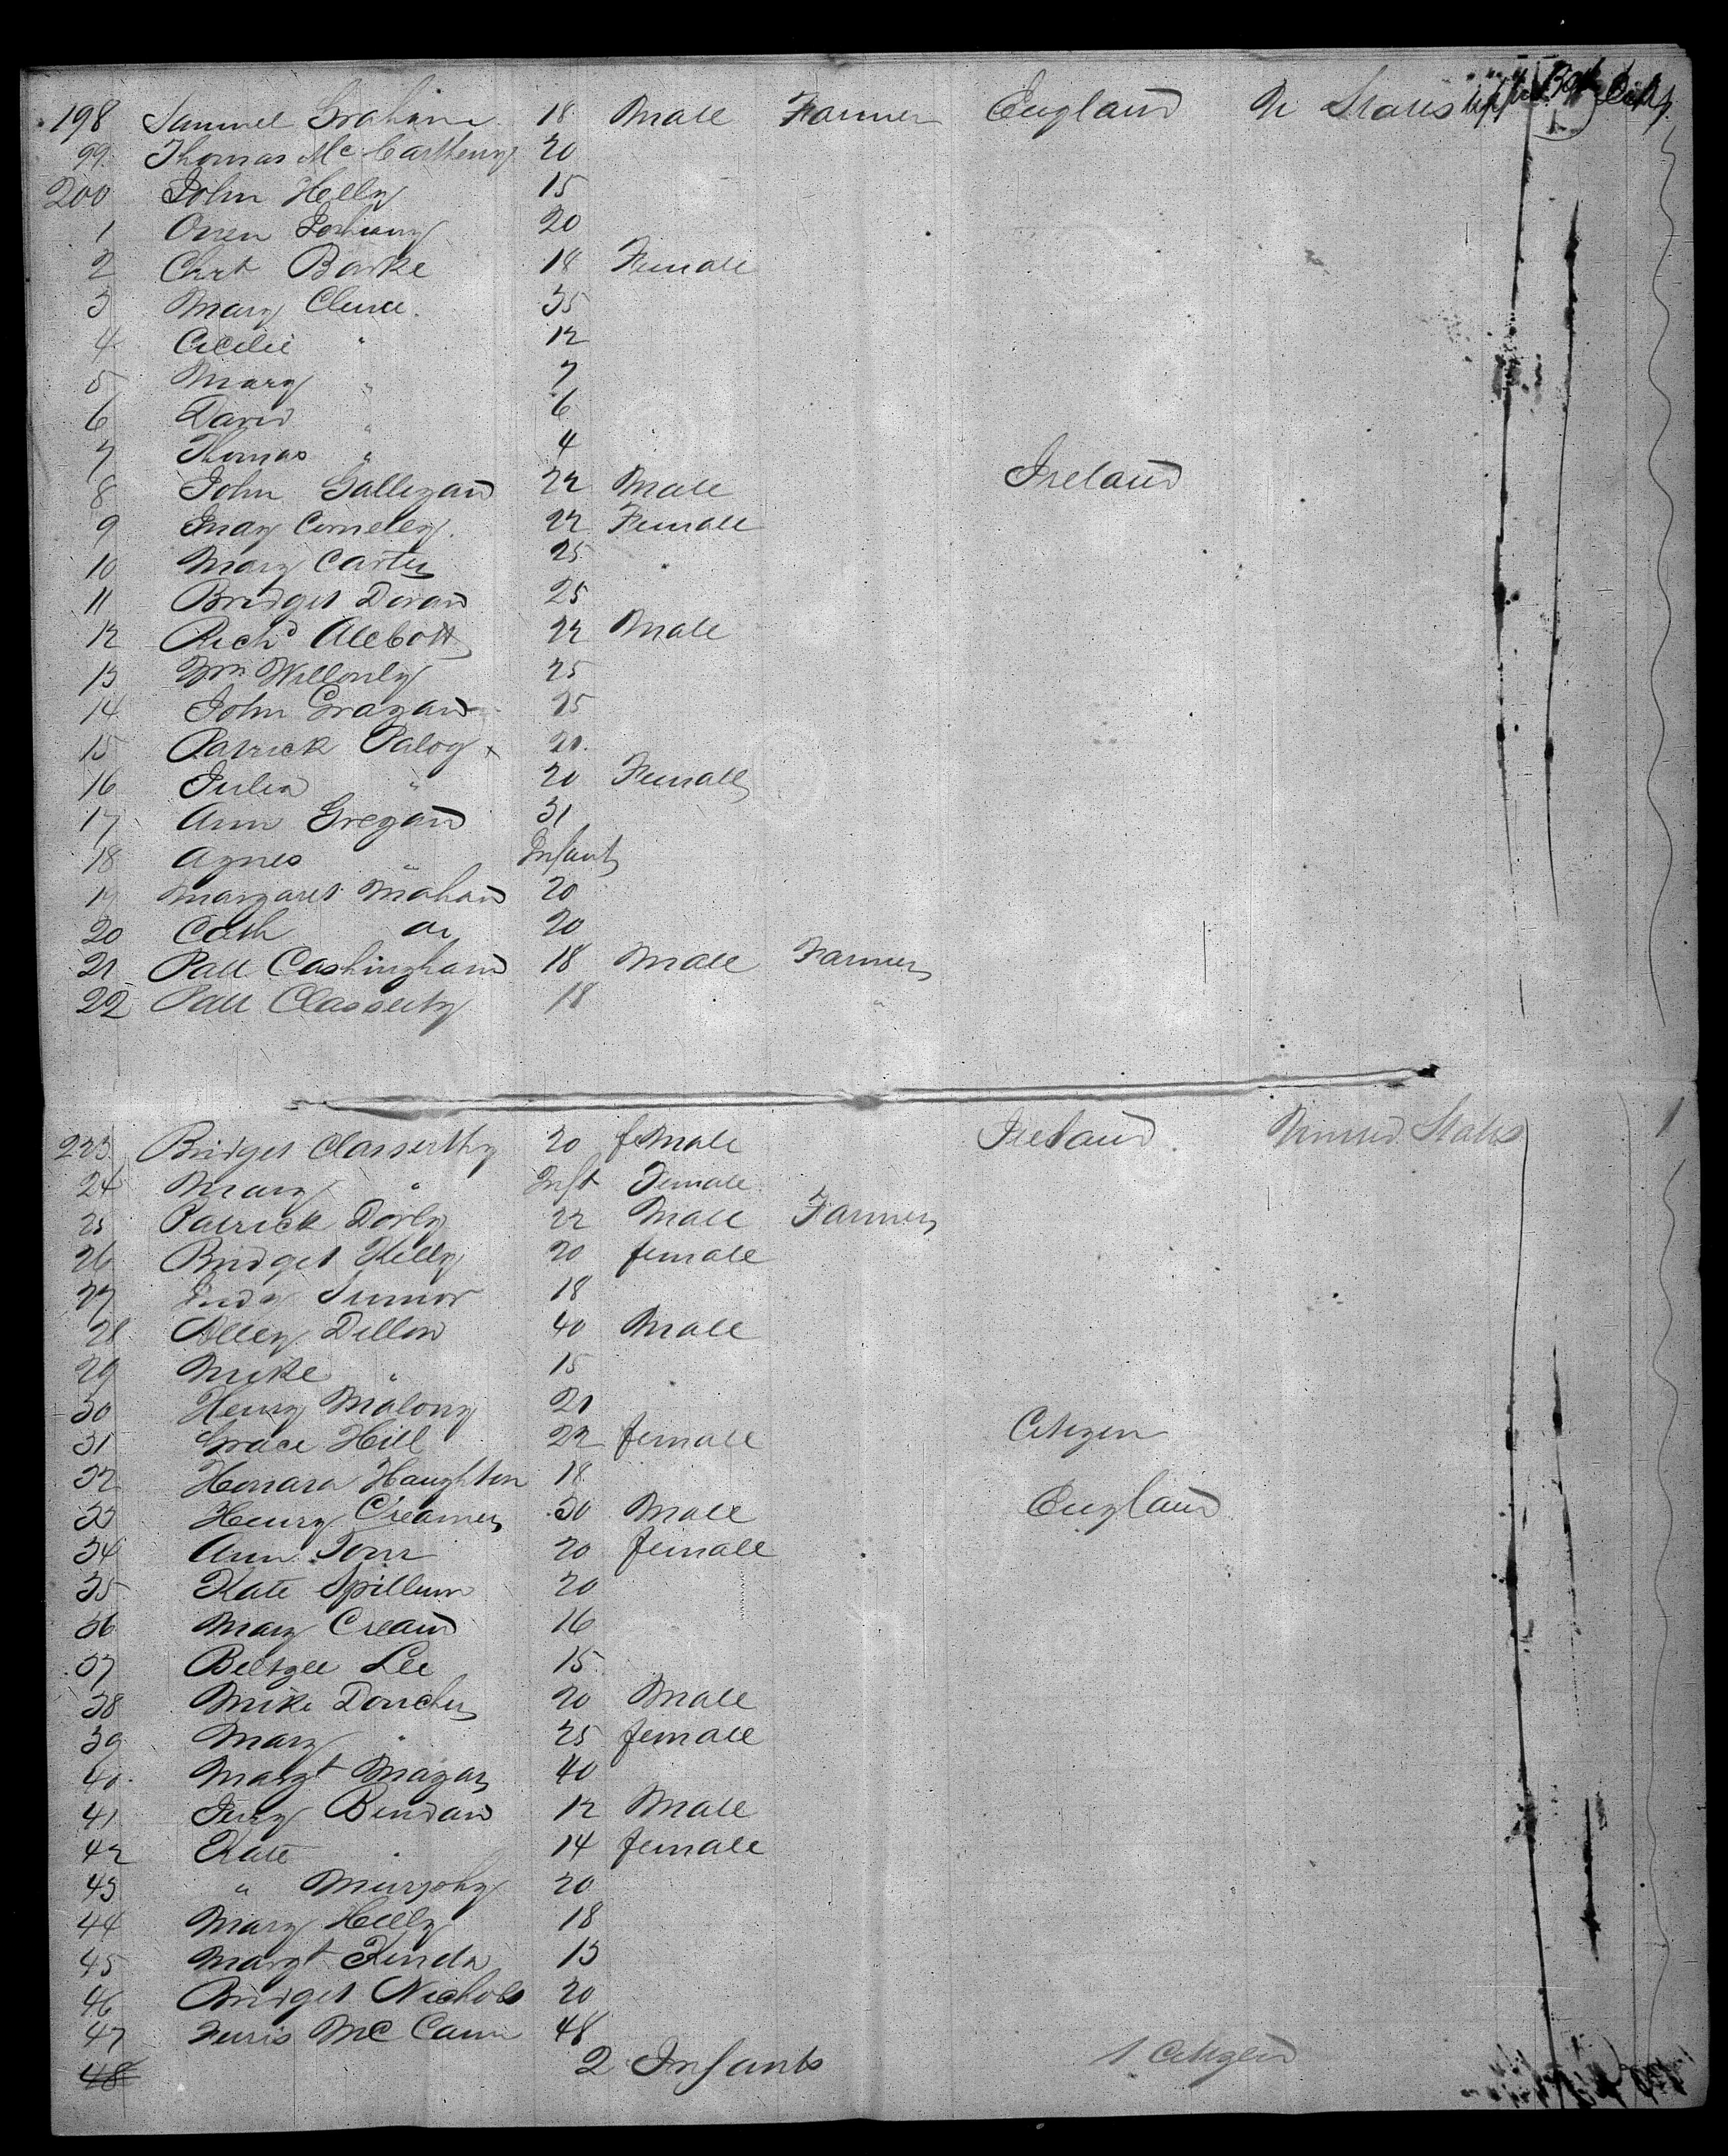 198 Samuel Graham 18 Male Farmer England U States
99 Thomas Mc Cartheny 20
200 John Helly 15
1 Owen 20
2 Cart Barke 18 Female
3 Mary Clune 35
4 Cicilie " 12
5 Mary " 7
6 David " 6
7 Thomas " 4
8 John Galligan 22 Male Ireland
9 Mary 22 Female
10 Mary Carter 25
11 Bridget Doran 25
12 Richd Abbott 22 Male
13 Wm Willonly 25
14 John Gragan 25
15 Patrick Palog 21
16 Julia " 20 Female
17 Ann Gregan 31
18 Agnes " Infant
19 Margaret Mahan 20
20 Cath do 20
21 Patt Cashingham 18 Male Farmer
22 Patt Classerty 18 "
223 Bridget Classerthy 20 female Ireland United States
24 Mary " Inft Female
25 Patrick Dorly 22 Male Farmer
26 Bridget Kelly 20 female
27 Judy Junior 18
28 Alley Dillon 40 Male
29 Mike " 15
30 Henry Malony 21
31 Grace Hill 22 female Citizen
32 Honara Haughton 18
33 Henry Creamer 30 Male England
34 Ann 20 female
35 Kate Spillum 20
36 Mary Crean 16
37 Betsgee Lee 15
38 Mike Doucher 20 Male
39 Mary " 25 female
40 Margt Magar 40
41 Jerry Bindan 12 Male
42 Kate " 14 female
43 " Murphy 20
44 Mary Helly 18
45 Margt Kinda 13
46 Bridget Nichols 20
47 Mc Cann 48
48 2 Infants 1 Citizen